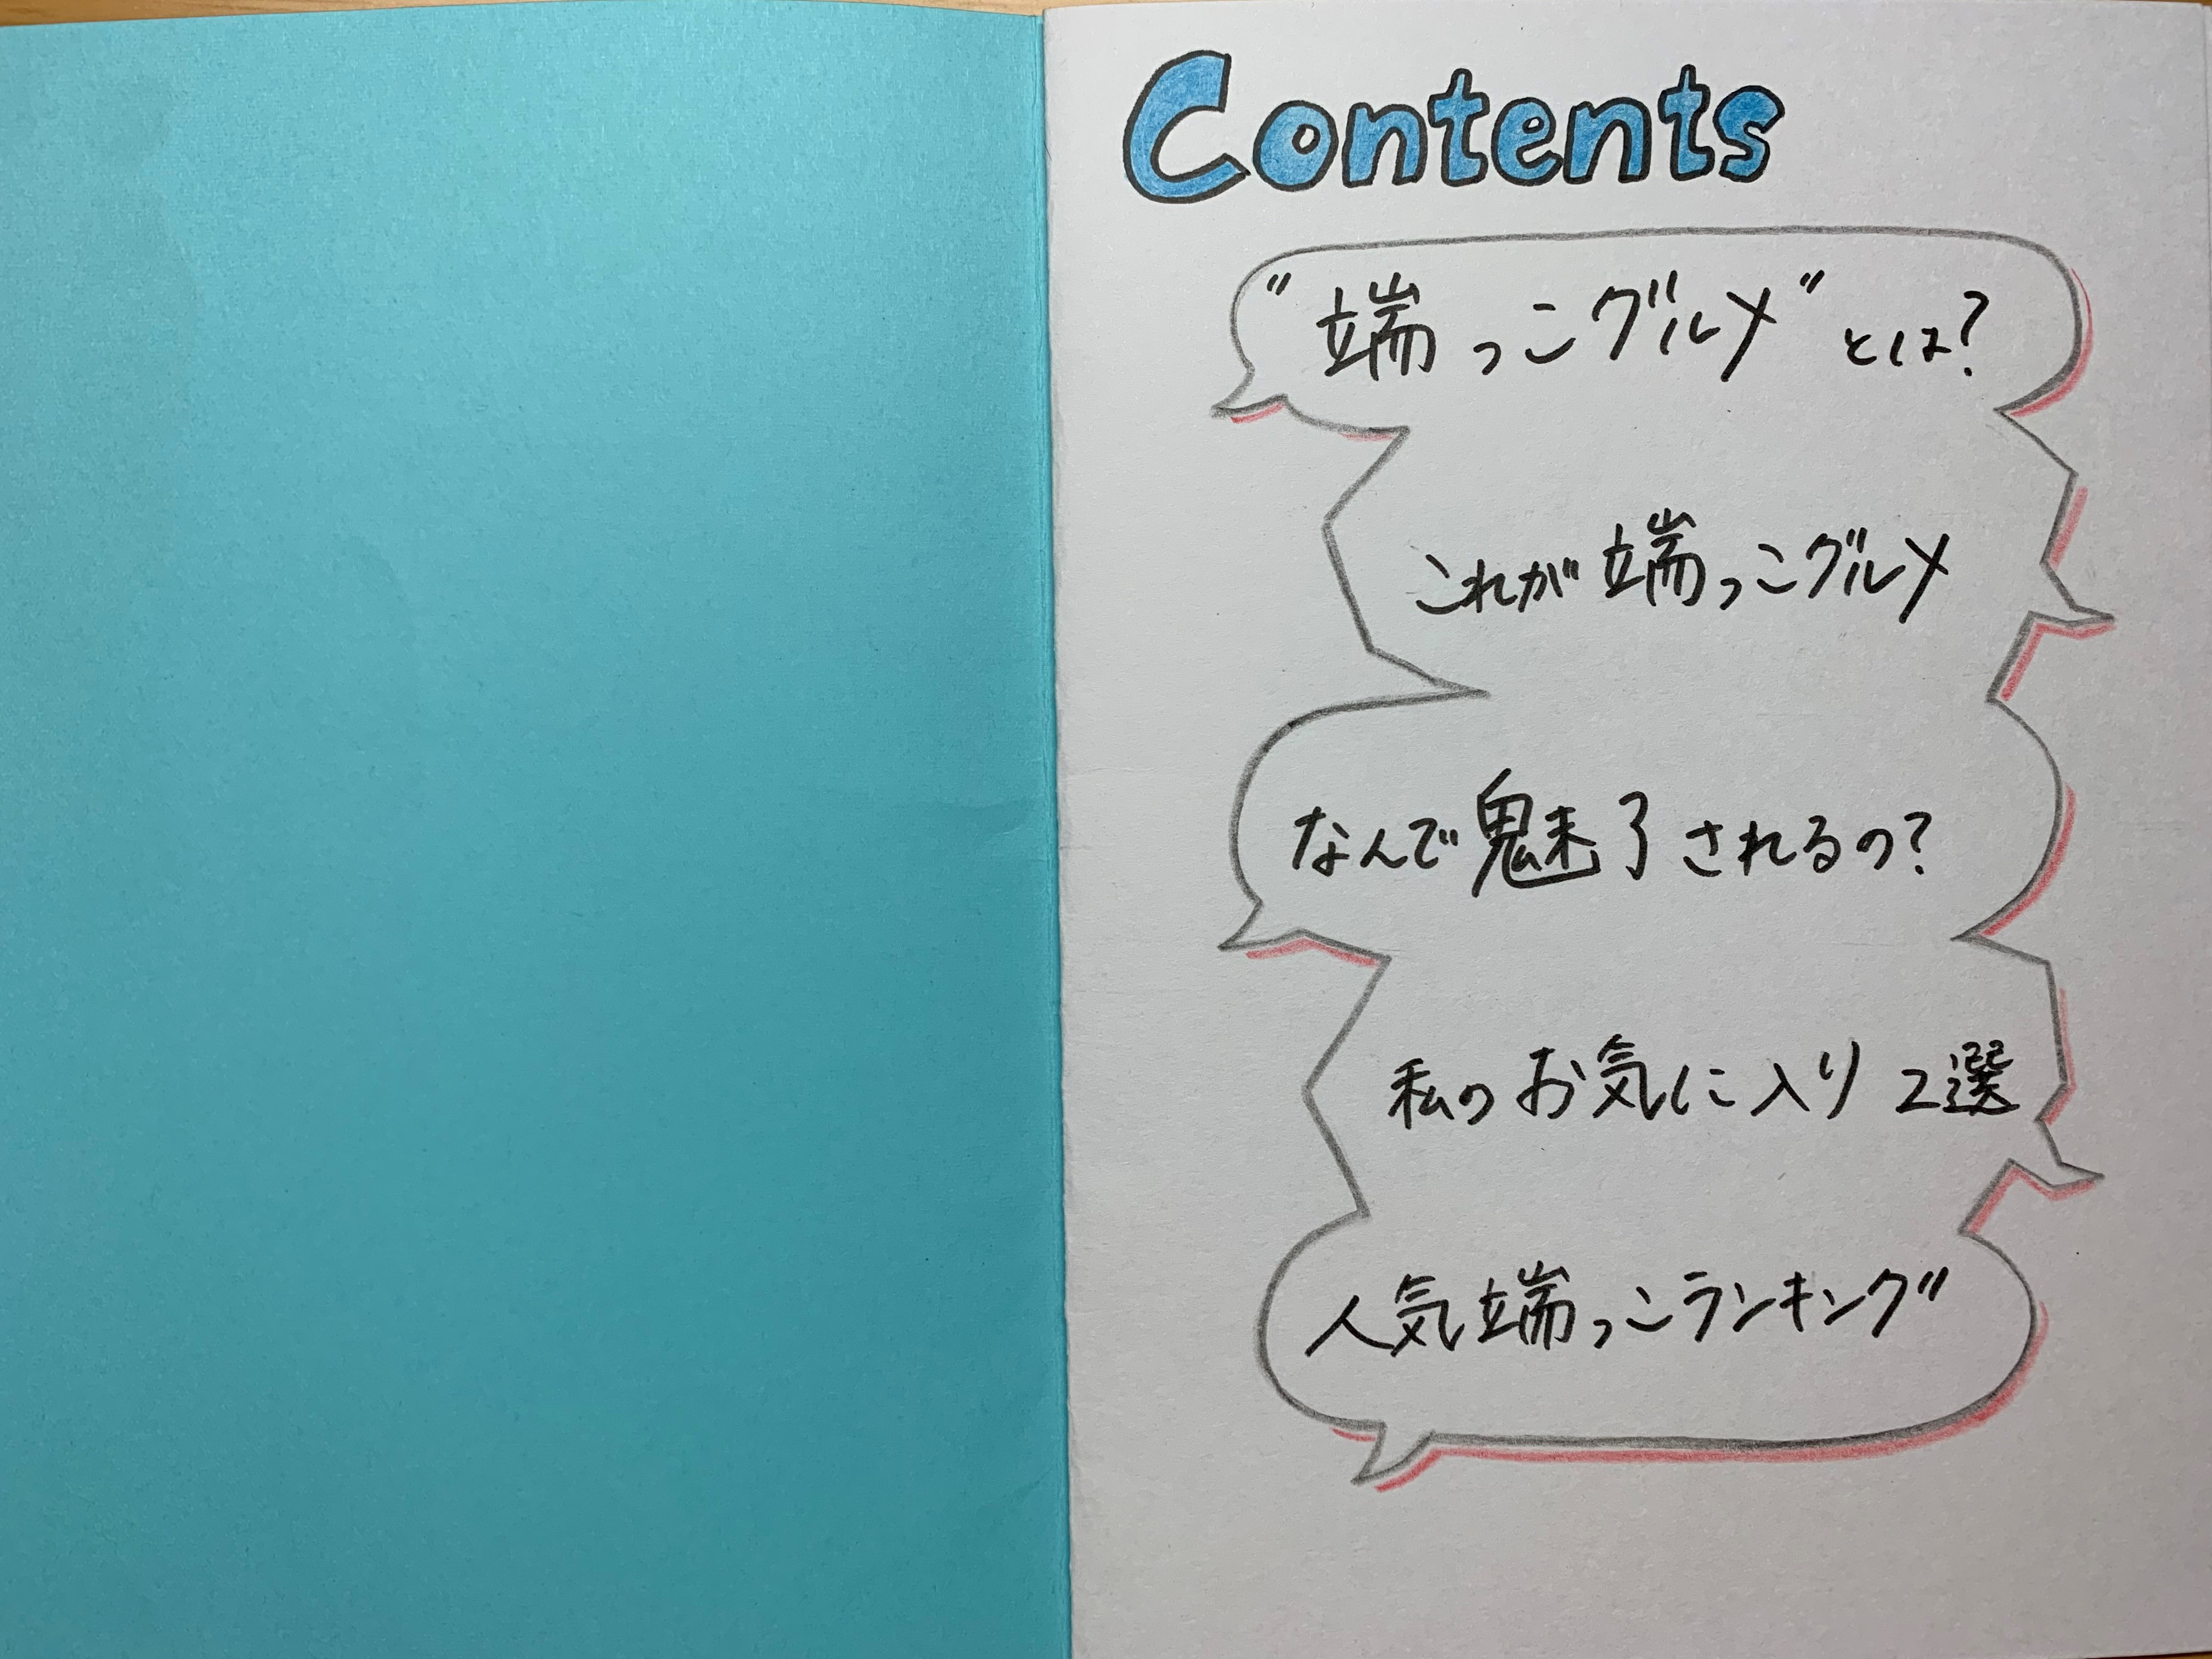 Contents
"端っこグルメ"とは?
これが端っこグルメ
なんで魅了されるの?
私のお気に入り2選
人気端っこランキング